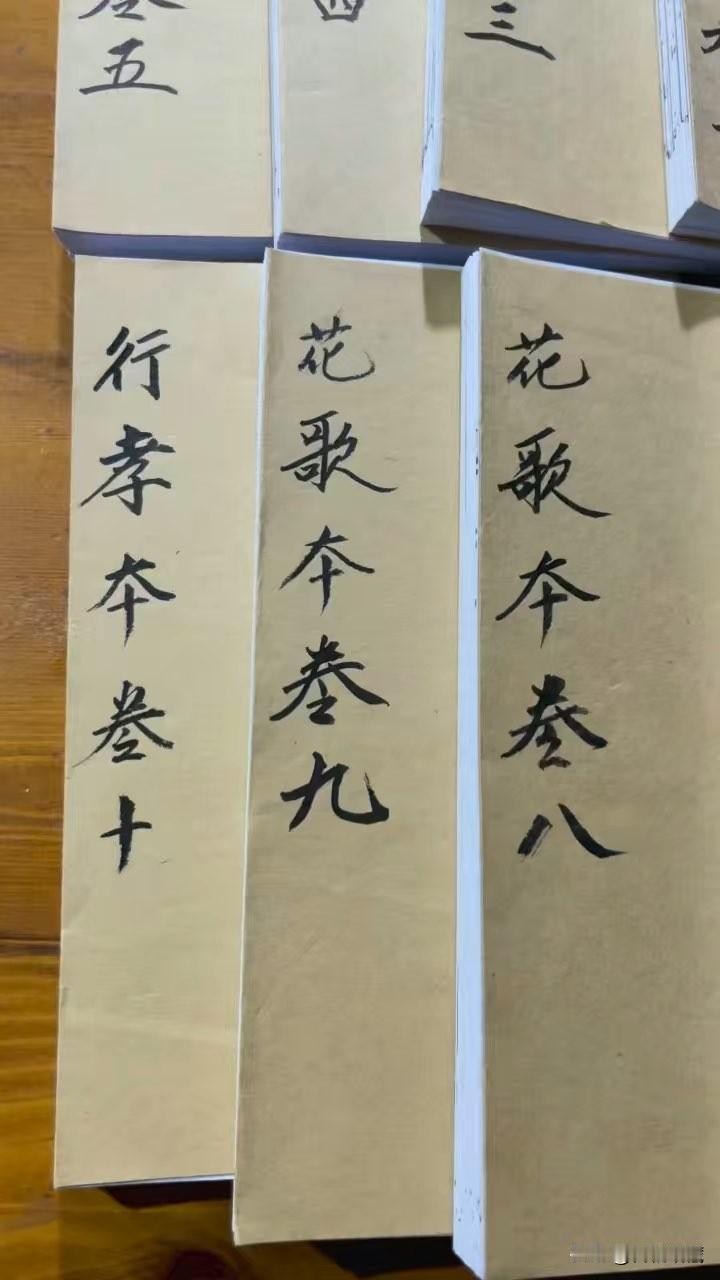 三
四
卷五
花歌本卷八
花歌本卷九
行孝本卷十